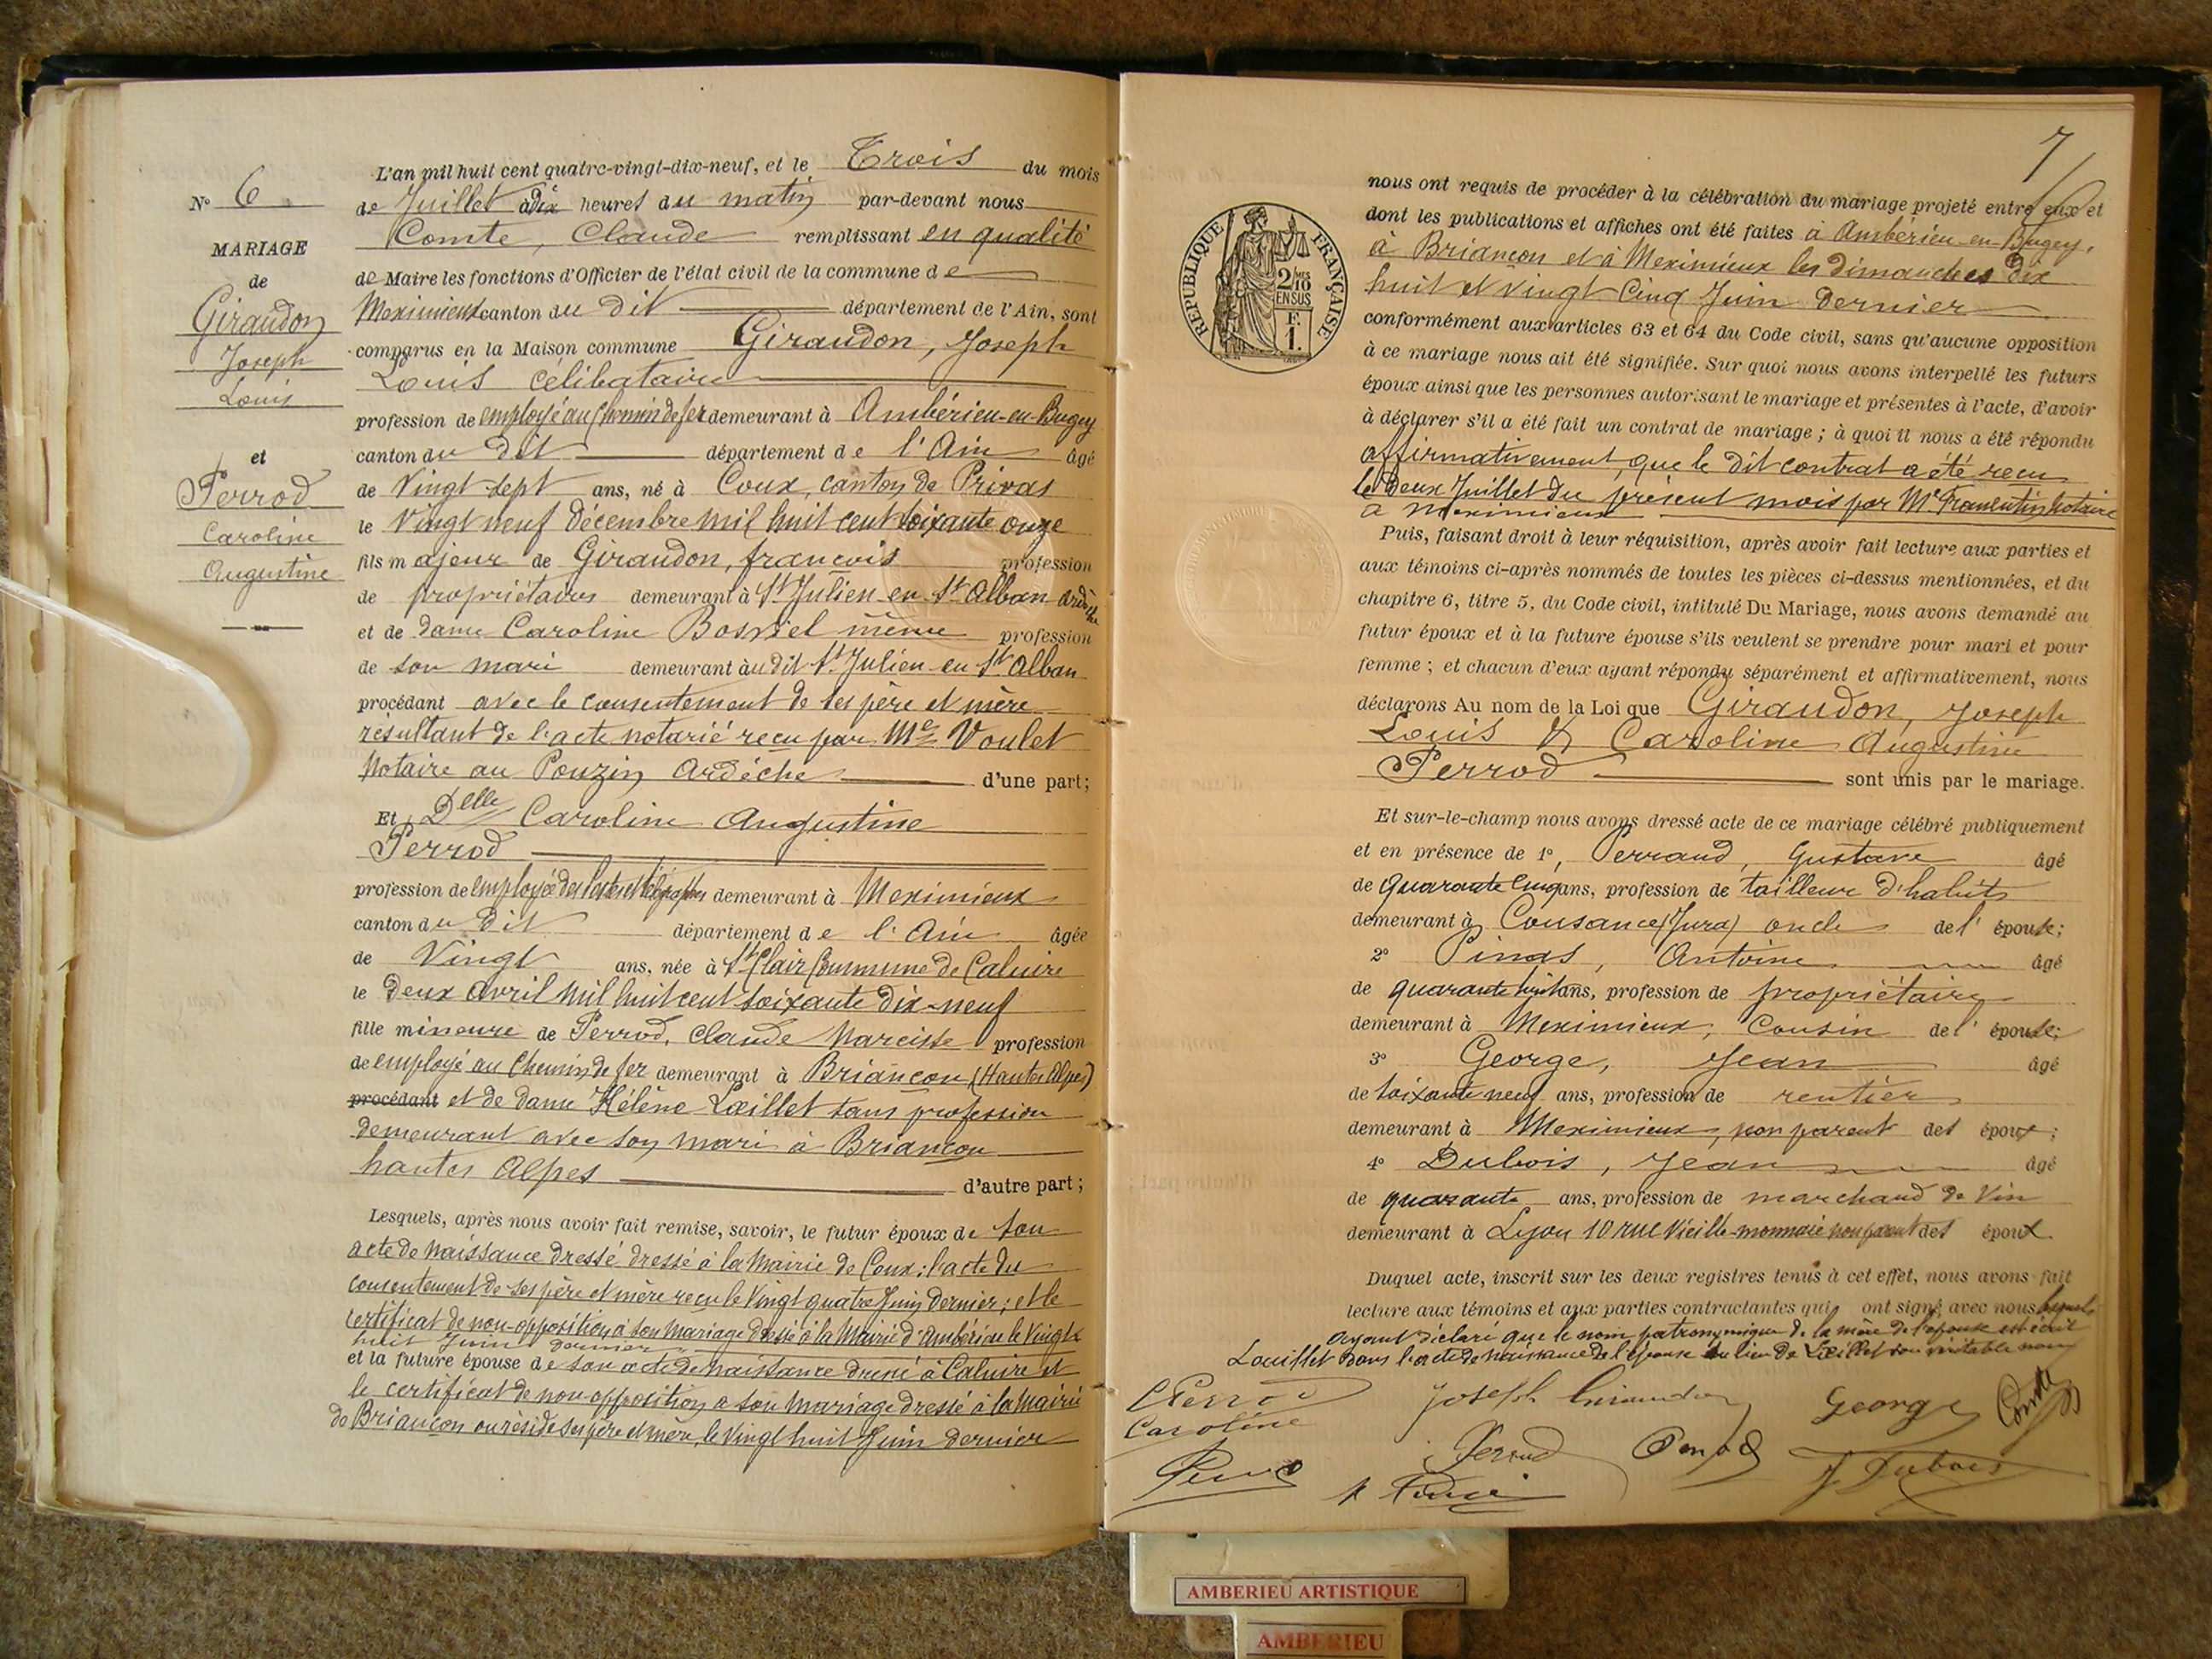 N° 6
MARIAGE
de
Giraudon
Joseph
Louis
et
Perrod
Caroline
Augustine
L'an mil huit cent quatre-vingt-dix-neuf, et le Trois du mois
de Juillet à dix heures du matin par-devant nous
Comte, Claude remplissant en qualité
de Maire les fonctions d'Officier de l'état civil de la commune de
Meximieux canton du dit département de l'Ain, sont
comparus en la Maison commune Giraudon, Joseph
Louis célibataire
profession de employé au chemin de fer demeurant à Ambérieu-en-Bugey
canton du dit département de l'Ain âgé
de Vingt sept ans, né à Coux, canton de Privas
le Vingt neuf décembre mil huit cent soixante onze
fils majeur de Giraudon, françois profession
de propriétaires demeurant à St Julien en St Alban ardèche
et de dame Caroline même profession
de son mari demeurant au dit St Julien en St Alban
procédant avec le consentement de ses père et mère
résultant de l'acte notarié reçu par Me Voulet
Notaire au Pouzin Ardèche d'une part;
Et Delle Caroline Augustine
Perrod
profession de employée des Postes et télégraphes demeurant à Meximieux
canton du dit département de l'Ain âgée
de Vingt ans, née à St Clair Commune de Caluire
le deux avril mil huit cent soixante dix-neuf
fille mineure de Perrod, Claude Narcisse profession
de employé au Chemin de fer demeurant à Briançon (Hautes Alpes)
procédant et de dame Hélène Lœillet sans profession
demeurant avec son mari à Briançon
hautes Alpes d'autre part;
Lesquels, après nous avoir fait remise, savoir, le futur époux de son
acte de naissance dressé dressé à la Mairie de Coux; l'acte du
consentement de ses père et mère reçu le Vingt quatre Juin dernier; et le
certificat de non-opposition à son mariage dressé à la Mairie d'Ambérieu le Vingt
huit Juin dernier
et la future épouse de son acte de naissance dressé à Caluire et
le certificat de non opposition a son mariage dressé à la Mairie
de Briançon ou réside ses père et mère, le Vingt huit Juin dernier
7
RÉPUBLIQUE FRANÇAISE
2/10
EN SUS
F.
1.
nous ont requis de procéder à la célébration du mariage projeté entre eux et
dont les publications et affiches ont été faites à Ambérieu-en-Bugey,
à Briançon et à Meximieux les dimanches dix
huit et vingt Cinq Juin dernier
conformément aux articles 63 et 64 du Code civil, sans qu'aucune opposition
à ce mariage nous ait été signifiée. Sur quoi nous avons interpellé les futurs
époux ainsi que les personnes autorisant le mariage et présentes à l'acte, d'avoir
à déclarer s'il a été fait un contrat de mariage; à quoi il nous a été répondu
affirmativement, que le dit contrat a été reçu
le deux Juillet du présent mois par Me notaire
à Meximieux
Puis, faisant droit à leur réquisition, après avoir fait lecture aux parties et
aux témoins ci-après nommés de toutes les pièces ci-dessus mentionnées, et du
chapitre 6, titre 5, du Code civil, intitulé Du Mariage, nous avons demandé au
futur époux et à la future épouse s'ils veulent se prendre pour mari et pour
femme; et chacun d'eux ayant répondu séparément et affirmativement, nous
déclarons Au nom de la Loi que Giraudon, Joseph
Louis & Caroline Augustine
Perrod sont unis par le mariage.
Et sur-le-champ nous avons dressé acte de ce mariage célébré publiquement
et en présence de 1°, Perraud, Gustave âgé
de quarante cinq ans, profession de tailleur d'habits
demeurant à Cousance (Jura) oncle de l'épouse;
2° Antoine âgé
de quarante huit ans, profession de propriétaire
demeurant à Meximieux, Cousin de l'épouse;
3° George, Jean âgé
de soixante neuf ans, profession de rentier
demeurant à Meximieux, non parent des époux;
4° Dubois, Jean âgé
de quarante ans, profession de marchand de Vin
demeurant à Lyon 10 rue Vieille-monnaie non parent des époux.
Duquel acte, inscrit sur les deux registres tenus à cet effet, nous avons fait
lecture aux témoins et aux parties contractantes qui ont signé avec nous lesquels
ayant déclaré que le nom patronymique de la mère de l'épouse est écrit
Louillet dans l'acte de naissance de l'épouse au lieu de Lœillet son véritable nom
Perrod Joseph Giraudon George Comte
Caroline
J Dubois
AMBERIEU ARTISTIQUE
AMBERIEU